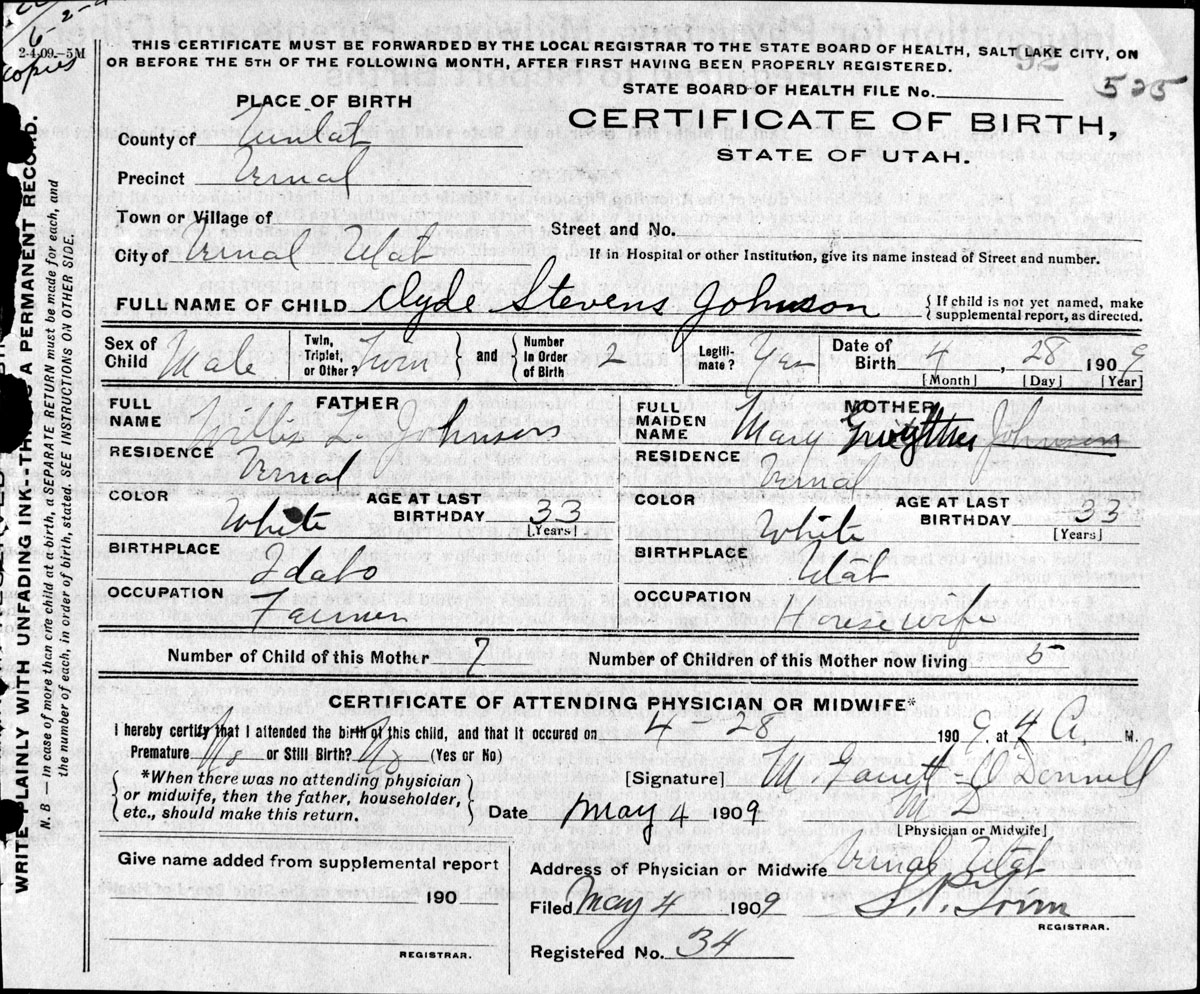 6
2-4-09.—5M
copies
THIS CERTIFICATE MUST BE FORWARDED BY THE LOCAL REGISTRAR TO THE STATE BOARD OF HEALTH, SALT LAKE CITY, ON
OR BEFORE THE 5TH OF THE FOLLOWING MONTH, AFTER FIRST HAVING BEEN PROPERLY REGISTERED.
92
STATE BOARD OF HEALTH FILE No.
525
PLACE OF BIRTH
CERTIFICATE OF BIRTH,
STATE OF UTAH.
County of
Precinct Vernal
Town or Village of
Street and No.
City of Vernal Utah
If in Hospital or other Institution, give its name instead of Street and number.
FULL NAME OF CHILD Clyde Stevens Johnson
{ If child is not yet named, make
supplemental report, as directed.
Sex of Child Male
Twin, Triplet, or Other? Twin } and { Number in Order of Birth 2
Legiti-mate? Yes
Date of Birth 4, 28 1909
[Month] [Day] [Year]
FATHER
FULL NAME Willis L. Johnson
RESIDENCE Vernal
COLOR White
AGE AT LAST BIRTHDAY 33
[Years]
BIRTHPLACE Idaho
OCCUPATION Farmer
MOTHER
FULL MAIDEN NAME Mary Gwyther Johnson
RESIDENCE Vernal
COLOR White
AGE AT LAST BIRTHDAY 33
[Years]
BIRTHPLACE Utah
OCCUPATION Housewife
Number of Child of this Mother 7
Number of Children of this Mother now living 5
CERTIFICATE OF ATTENDING PHYSICIAN OR MIDWIFE*
I hereby certify that I attended the birth of this child, and that it occured on 4-28 1909, at 4 A. M.
Premature No or Still Birth? No (Yes or No)
{ *When there was no attending physician
or midwife, then the father, householder,
etc., should make this return. }
[Signature] M. Garrett O'Donnell
M D
Date May 4 1909
[Physician or Midwife]
Give name added from supplemental report
190
REGISTRAR.
Address of Physician or Midwife Vernal Utah
Filed May 4 1909
REGISTRAR.
Registered No. 34
WRITE PLAINLY WITH UNFADING INK--THIS IS A PERMANENT RECORD.
N. B — In case of more then one child at a birth, a SEPARATE RETURN must be made for each, and
the number of each, in order of birth, stated. SEE INSTRUCTIONS ON OTHER SIDE.